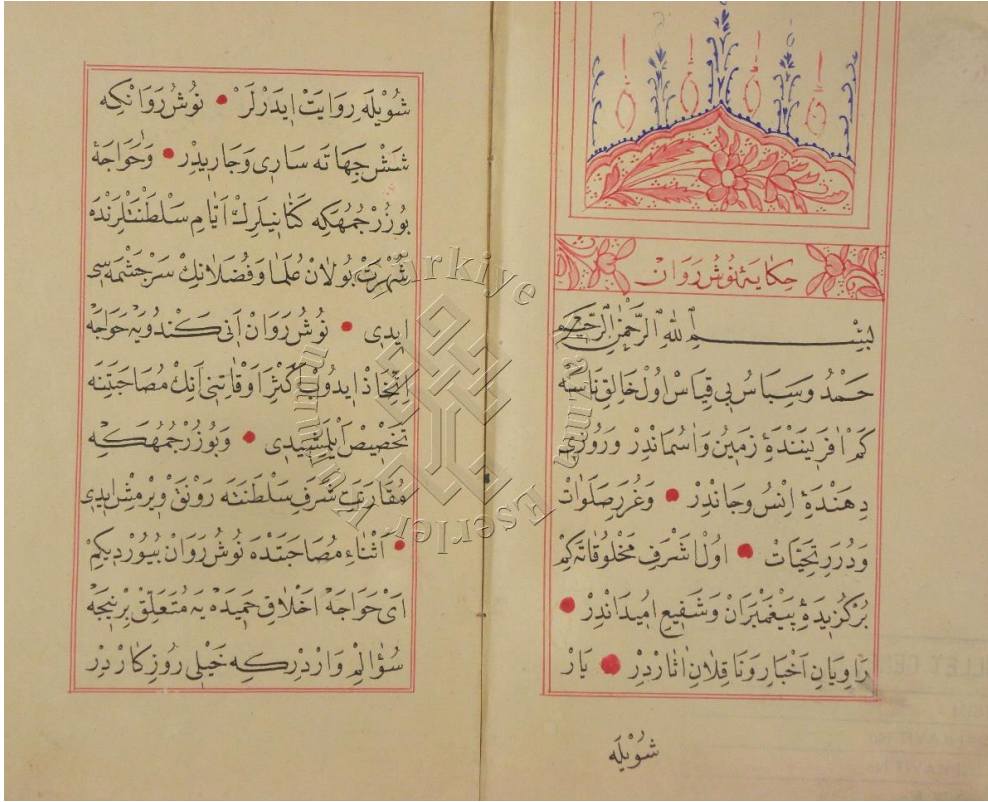 حِكَايَۀ نُوشْ رَوَانْ
بِسْمِ اللهِ الرَّحْمٰنِ الرَّحِيمِ
حَمْدُ وَسِپَاسْ بِى قِيَاسْ اُولْ خَالِقِ نَاسَه
كِمْ اٰفَرِينَنْدَۀِ زَمِينُ وَاٰسُمَانْدِرْ وَرُوزِى
دِهَنْدَۀِ اِنْسُ وجَانْدِرْ • وَغُرَرِ صَلَوَاتْ
وَدُرَرِ تَحِيَّاتْ • اُولْ اَشْرَفِ مَخْلُوقَاتَه كِمْ
بَرْكُزِيدَۀِ پَيْغَمْبَرَانْ وَشَفِيعِ اُمِيدَانْدِرْ •
رَاوِيَانِ اَخْبَارِ وَنَاقِلَانِ اٰثَارْدِرْ • يَارْ
شُويْلَه
شُويْلَه رِوَايَتْ اِيدَرْلَرْ • نُوشُرَوَانْكِه
شَشْ جِهَاتَه سَارِى وَجَارِيدِرْ • وَخَوَاجَۀ
بُوزُرْجُمُهَكِه كَنَانِيلَرِكْ اَيَّامِ سَلْطَنَتْلَرِنْدَه
شُهْرَتْ بُولَانْ عُلَمَا وَفُضَلَانِكْ سَرْچَشْمَه سِى
اِيدِى • نُوشُرَوَانْ اَنِى كَنْدُويَه خَوَاجَه
اِتِّخَاذْ اِيدُوبْ اَكْثَرْ اَوْقَاتِنِى اَنِكْ مُصَاحَبَتِنَه
تَخْصِيصْ اَيْلَمِشِيدِى • وَبُوزُرْجُمُهَكِه
مُقَارَنَتِ شَرَفِ سَلْطَنَتَه رَوْنَقْ وِيرْمِشْ اِيدِى
• اَثْنَاءِ مُصَاحَبَتْدَه نُوشُرَوَانْ بُيُورْدِيكِمْ
اَىْ خَوَاجَه اَخْلَاقِ حَمِيدَه يَه مُتَعَلِّقْ بِرْ نِيجَه
سُؤَالِمْ وَارْدِرْكِه خَيْلِى رُوزِكَارْدِرْ